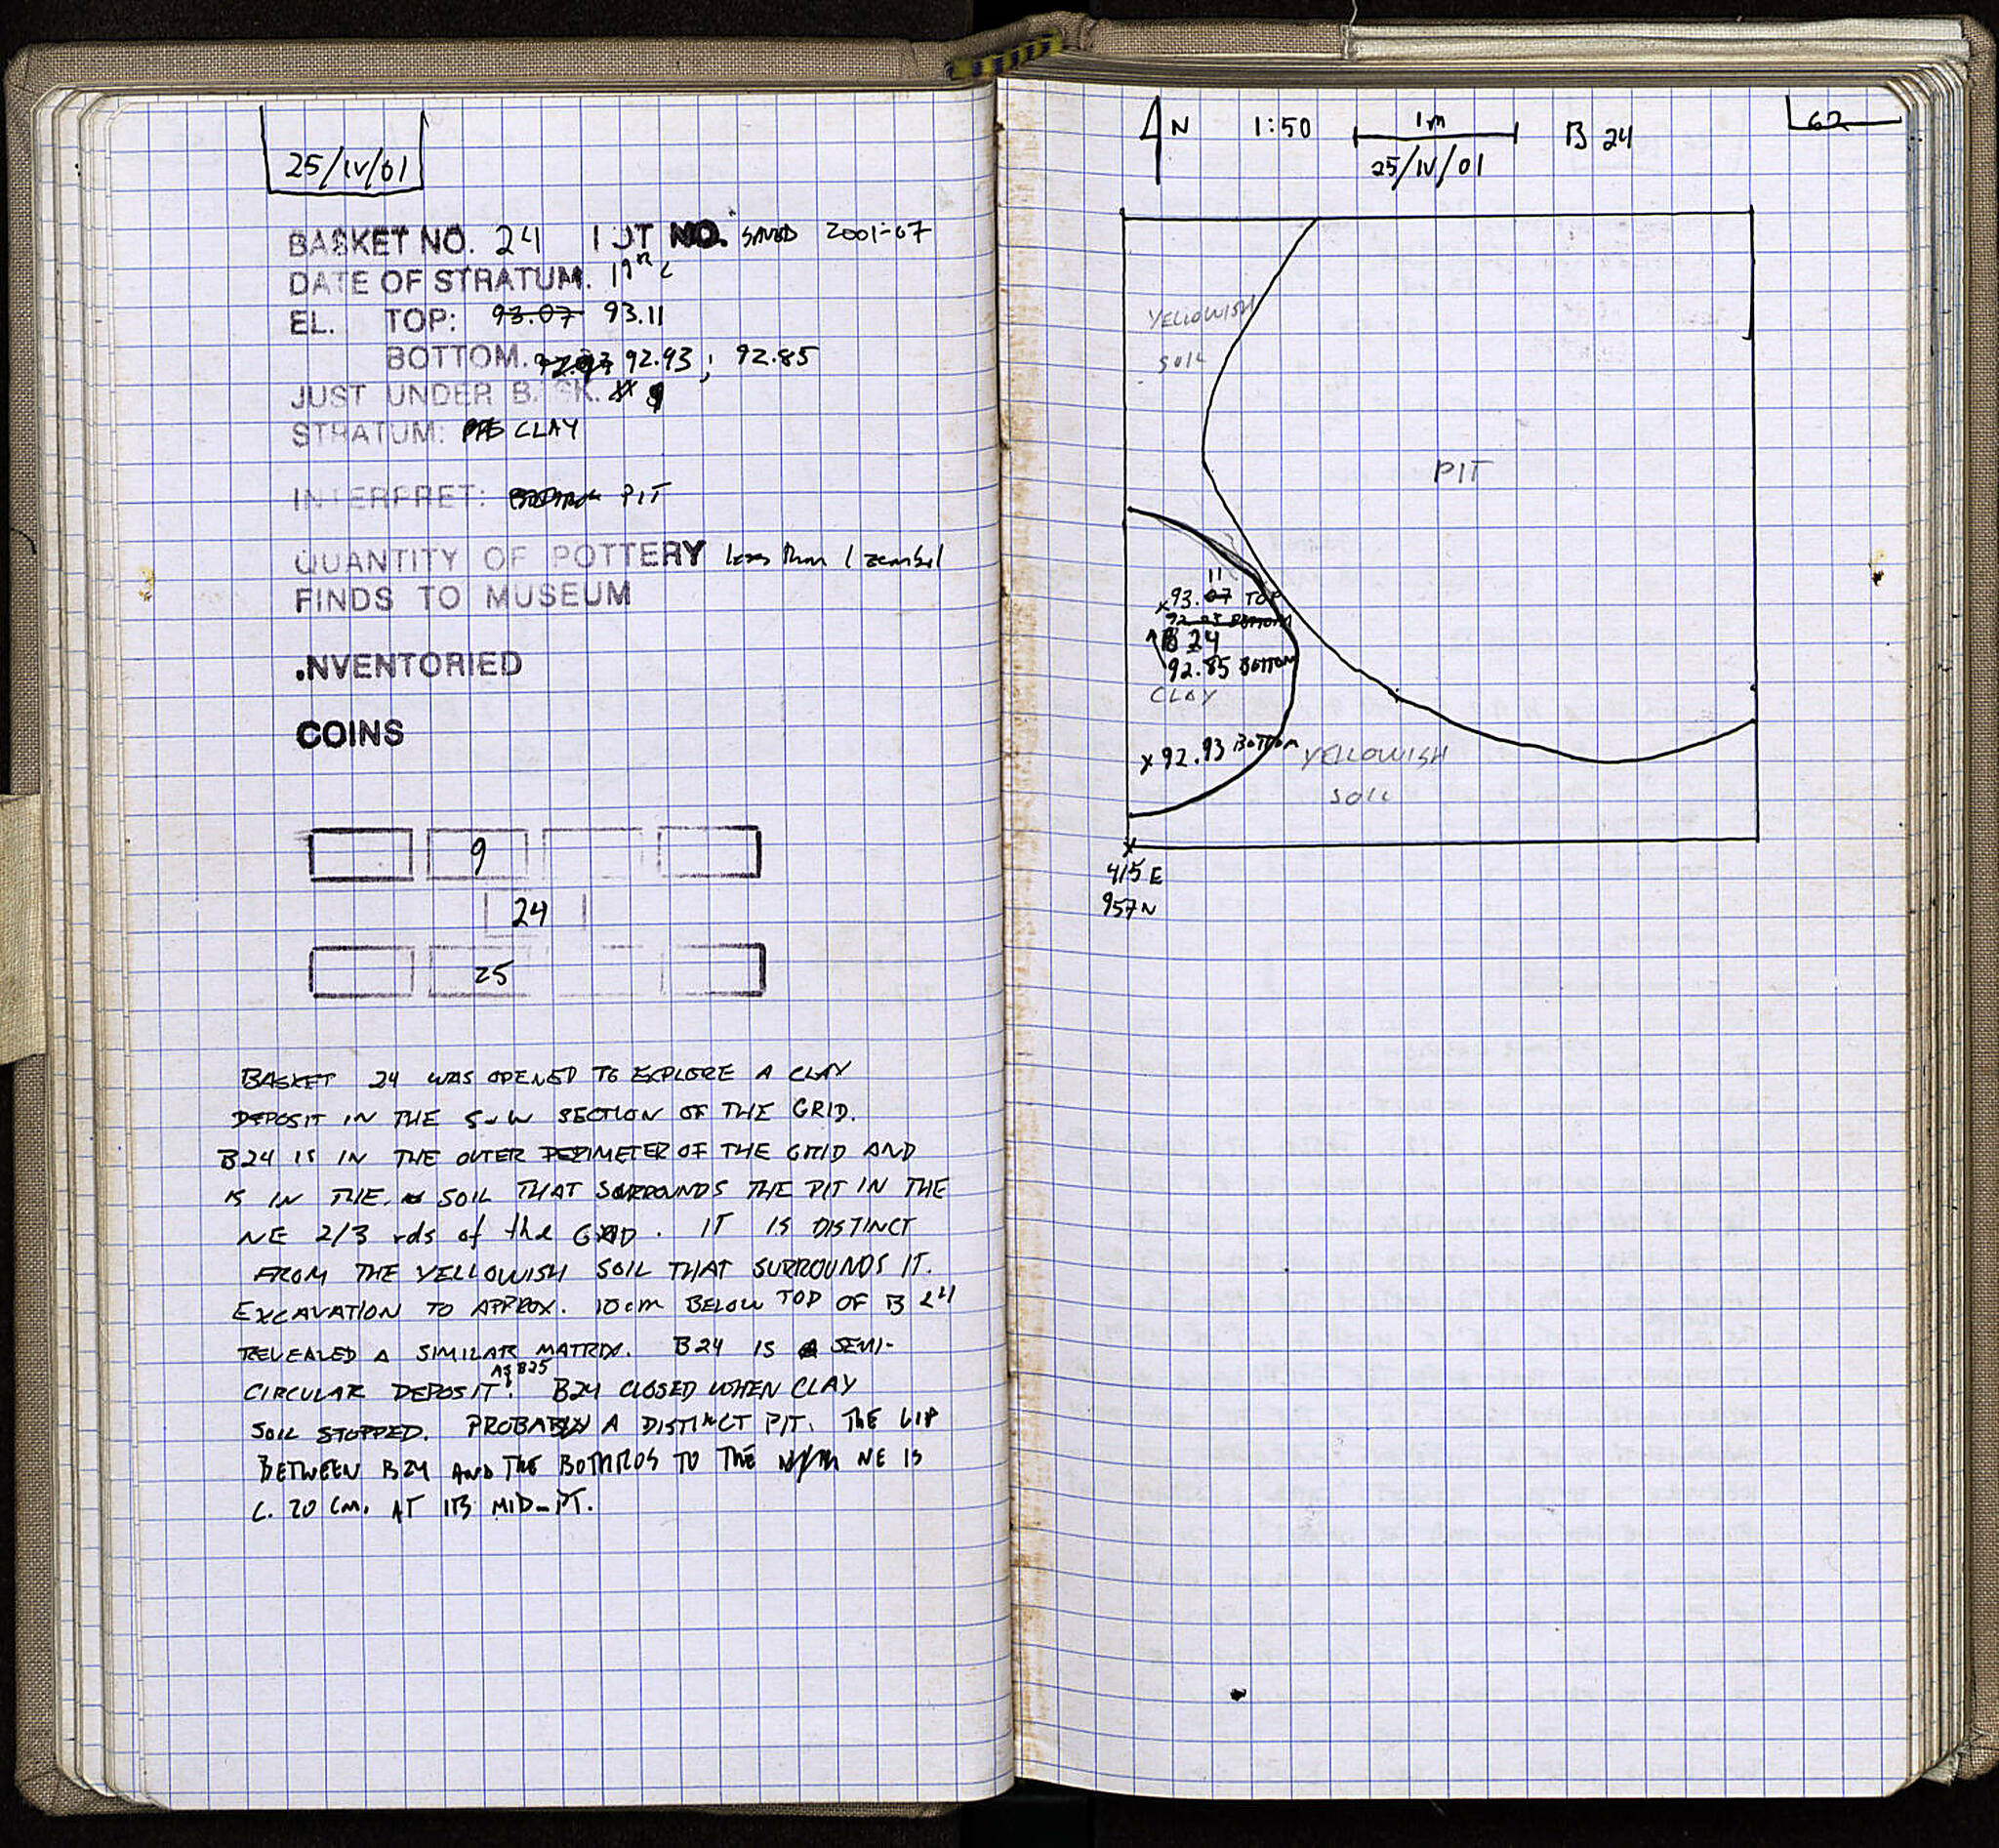 25/IV/01
BASKET NO. 24 LOT NO. SAVED 2001-07
DATE OF STRATUM. 19th C
EL. TOP: 93.07 93.11
BOTTOM. 92.93 ; 92.85
JUST UNDER B. SK. # 9
STRATUM: CLAY
INTERPRET: PIT
QUANTITY OF POTTERY less than 1 zembil
FINDS TO MUSEUM
.NVENTORIED
COINS
9
24
25
BASKET 24 WAS OPENED TO EXPLORE A CLAY
DEPOSIT IN THE S-W SECTION OF THE GRID.
B24 IS IN THE OUTER PERIMETER OF THE GRID AND
IS IN THE SOIL THAT SURROUNDS THE PIT IN THE
NE 2/3 rds of the GRID. IT IS DISTINCT
FROM THE YELLOWISH SOIL THAT SURROUNDS IT.
EXCAVATION TO APPROX. 10cm BELOW TOP OF B 24
REVEALED A SIMILAR MATRIX. B24 IS A SEMI-
AS B25
CIRCULAR DEPOSIT. B24 CLOSED WHEN CLAY
SOIL STOPPED. PROBABLY A DISTINCT PIT. THE LIP
BETWEEN B24 AND THE BOTHROS TO THE NE IS
C. 20 CM. AT ITS MID-PT.
N 1:50 1m B 24 62
25/IV/01
YELLOWISH
SOIL
PIT
11
93.07 TOP
BOTTOM
B 24
92.85 BOTTOM
CLAY
92.93 BOTTOM
YELLOWISH
SOIL
415 E
957 N